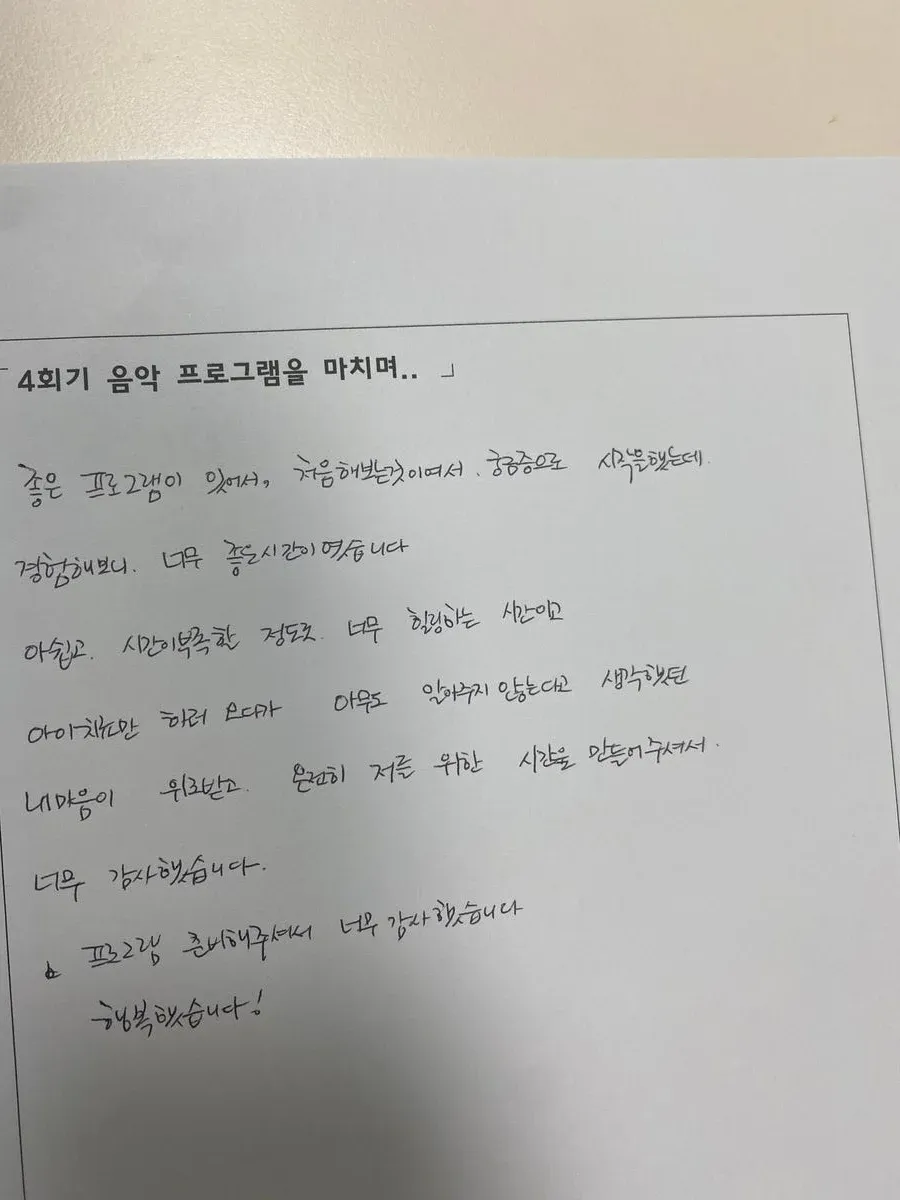 4회기 음악 프로그램을 마치며.. 」
좋은 프로그램이 있어서, 처음해보는것이여서. 궁금증으로 시작을했는데.
경험해보니. 너무 좋은시간이였습니다
아쉽고. 시간이부족할 정도로. 너무 힐링하는 시간이고
아이치료만 하러 오다가 아무도 알아주지 않는다고 생각했던
내마음이 위로받고. 온전히 저를 위한 시간을 만들어주셔서.
너무 감사했습니다.
프로그램 준비해주셔서 너무감사했습니다
행복했습니다!